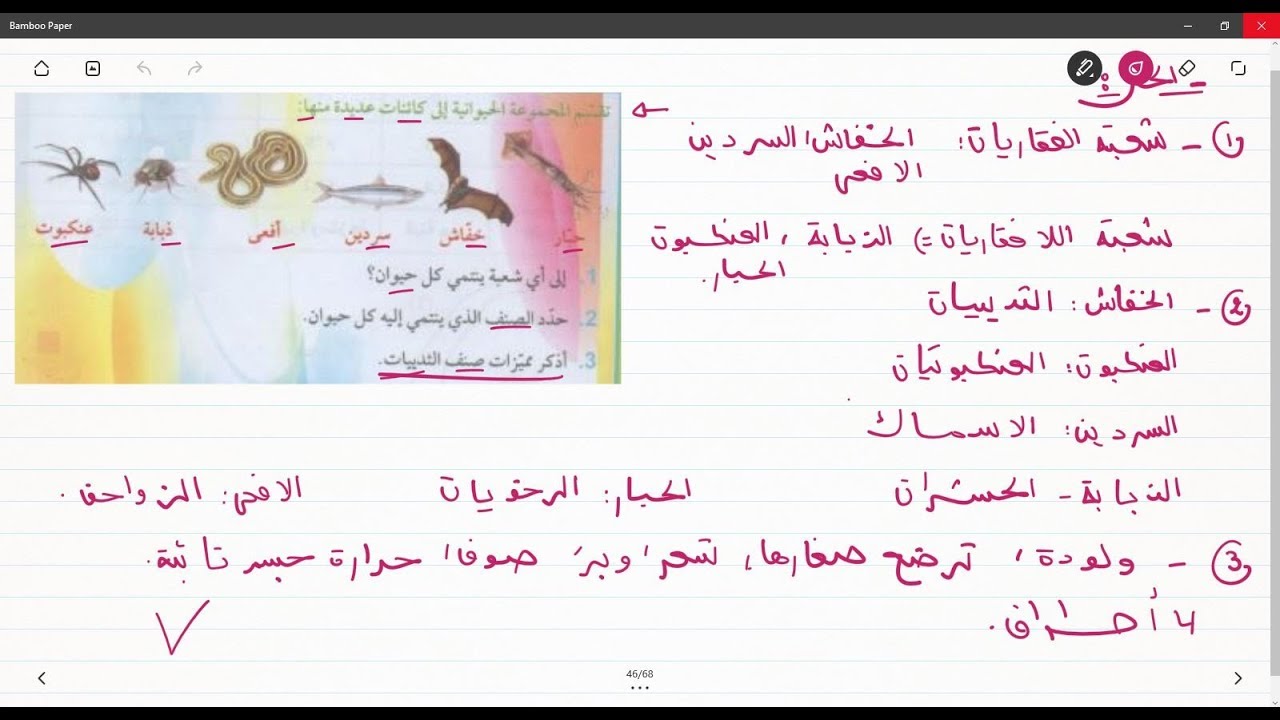 Bamboo Paper
الحل:
تقسم المجموعة الحيوانية إلى كائنات عديدة منها:
حبّار خفّاش سردين أفعى ذبابة عنكبوت
1. إلى أي شعبة ينتمي كل حيوان؟
2. حدّد الصنف الذي ينتمي إليه كل حيوان.
3. أذكر مميّزات صنف الثدييات.
1 - شعبة الفقاريات: الخفاش، السردين
الافعى
شعبة اللافقاريات = الذبابة، العنكبوت
الحبار.
2 - الخفاش: الثدييات
العنكبوت: العنكبوتيات
السردين: الاسماك
الذبابة - الحشرات الحبار: الرخويات الافعى: الزواحف.
3 - ولودة، ترضع صغارها، شعر، وبر، صوف، حرارة جسم ثابتة.
4 أطراف.
46/68